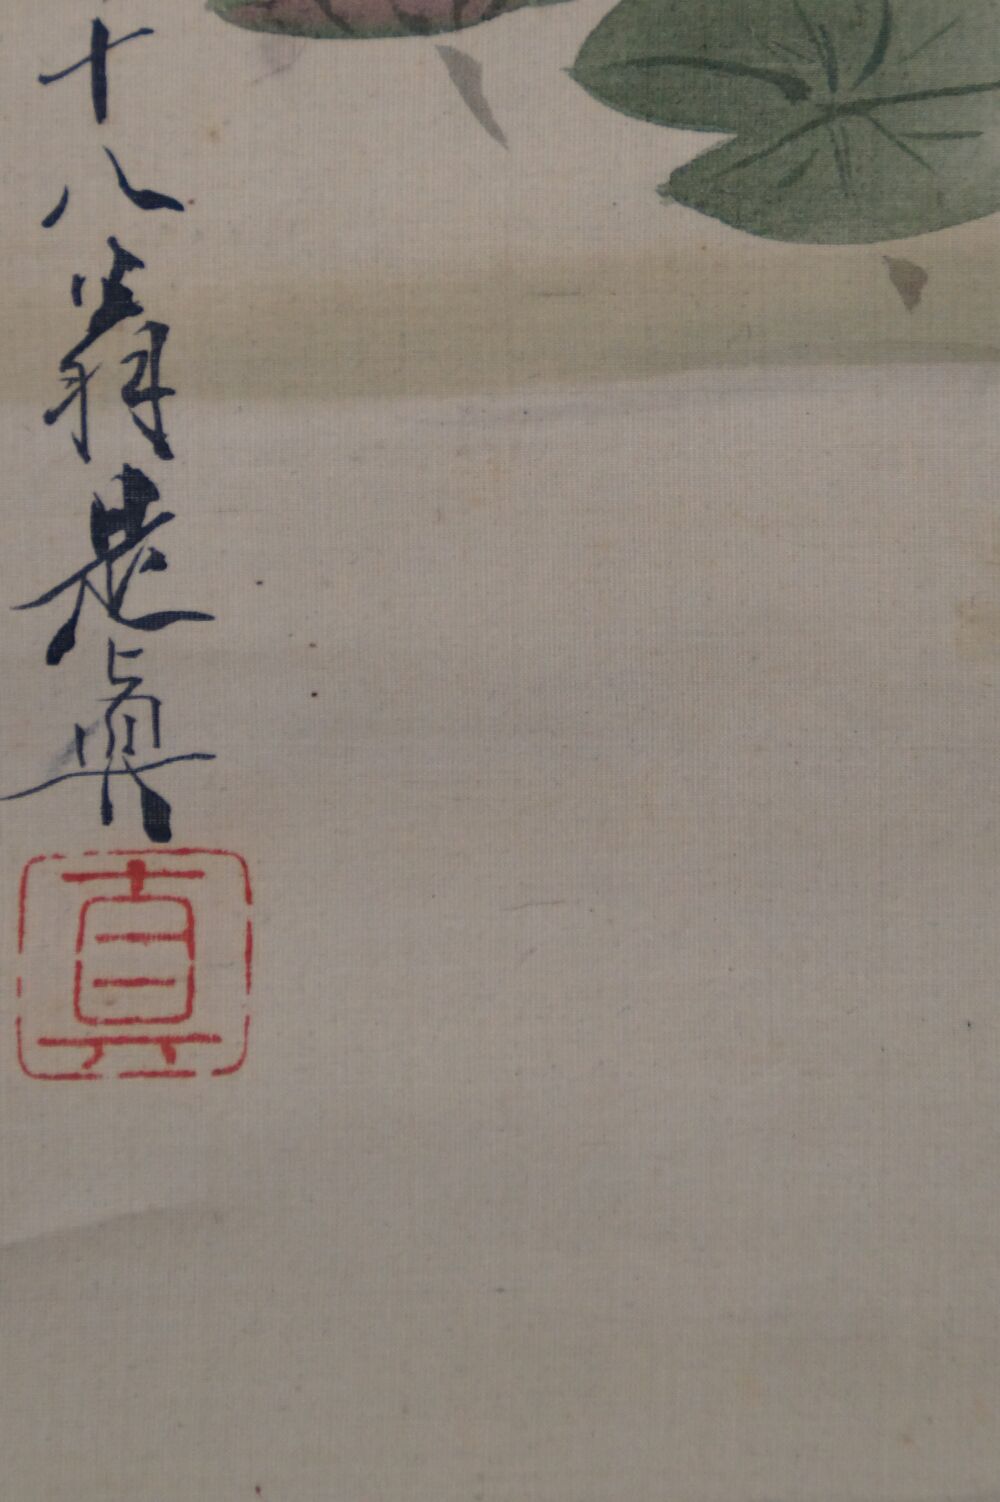 十八翁是真
真